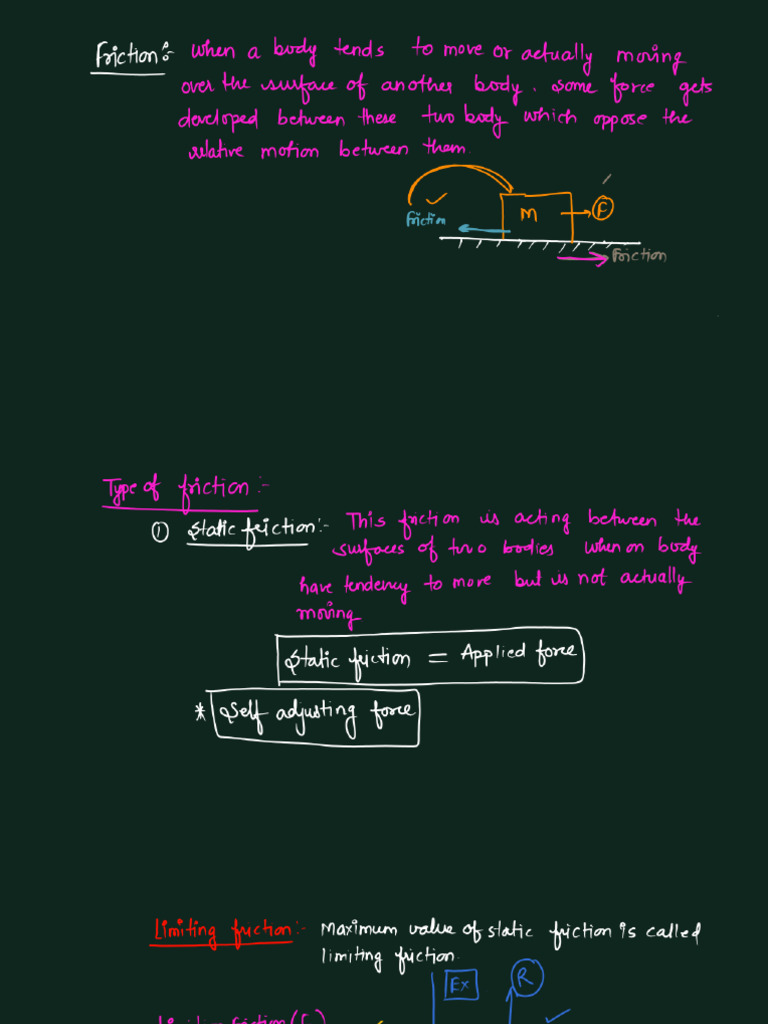 Friction:- When a body tends to move or actually moving
over the surface of another body. Some force gets
developed between these two body which oppose the
relative motion between them.
Friction
M
F
Friction
Type of friction:-
① Static friction:- This friction is acting between the
surfaces of two bodies when on body
have tendency to move but is not actually
moving
Static friction = Applied force
* Self adjusting force
Limiting friction:- Maximum value of static friction is called
limiting friction.
Ex
R